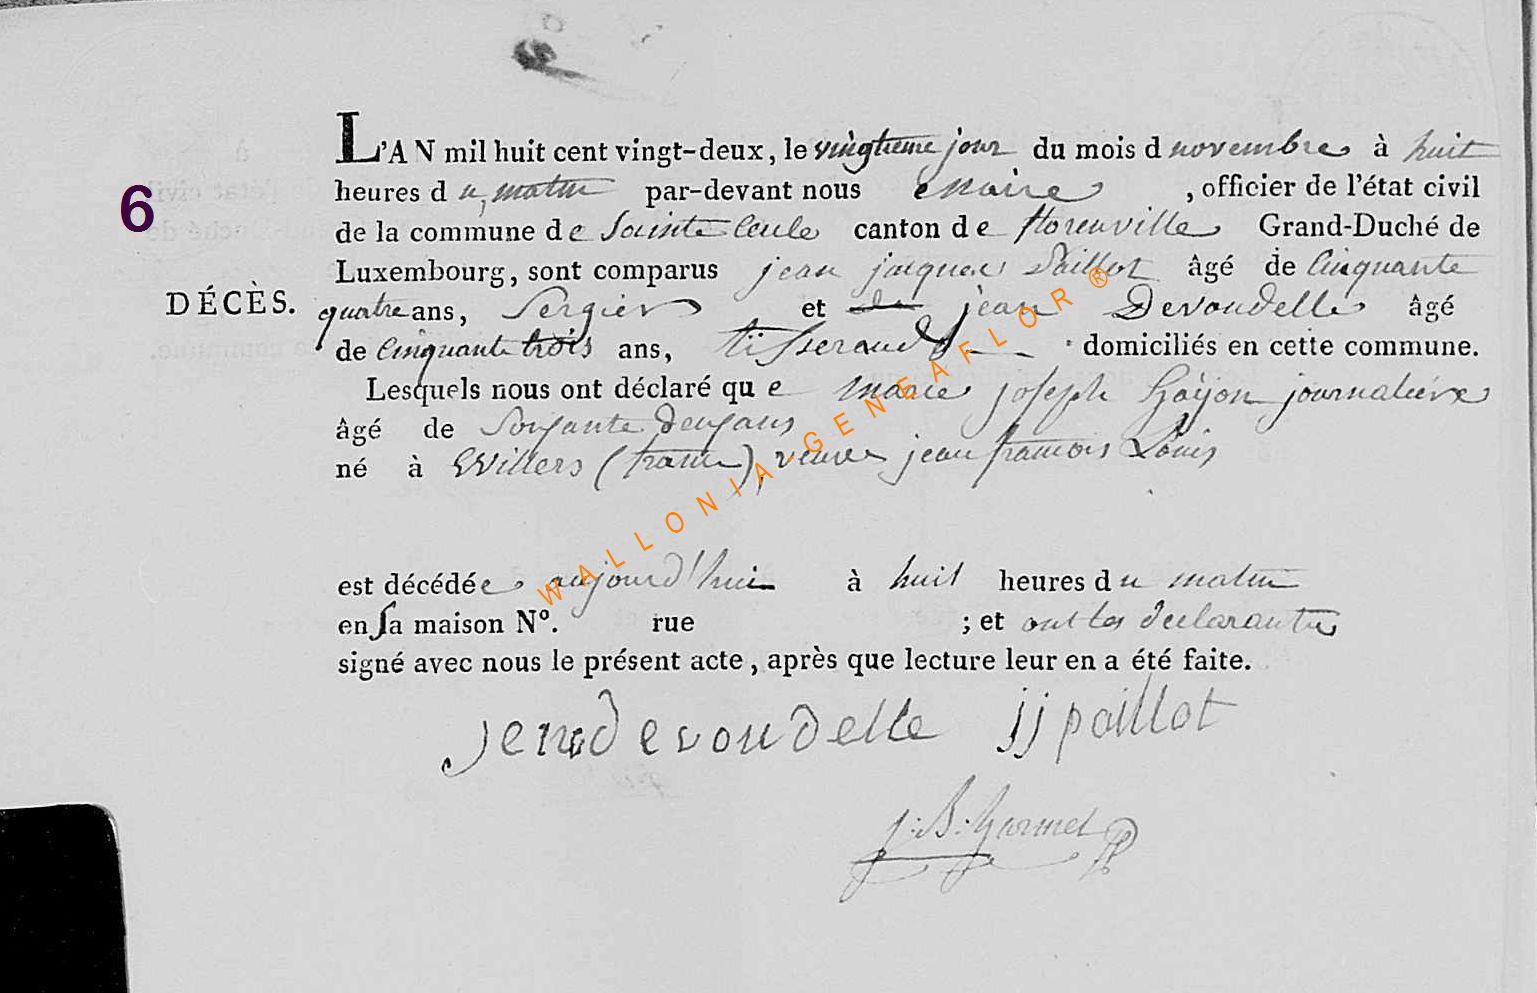 L'AN mil huit cent vingt-deux, le vingtieme jour du mois d novembre à huit
6
heures d u matin par-devant nous maire, officier de l'état civil
de la commune de Sainte Cecile canton de florenville Grand-Duché de
Luxembourg, sont comparus jean jacques Paillot âgé de Cinquante
DÉCÈS. quatre ans, Sergier et jean Devoudelle âgé
de Cinquante trois ans, tisserand domiciliés en cette commune.
Lesquels nous ont déclaré qu e marie joseph journaliére
âgé de Soixante deux ans
né à Villers (france), veuve jean francois Louis
est décédée aujourd'hui à huit heures du matin
en Sa maison N°. rue ; et ont les declarants
signé avec nous le présent acte, après que lecture leur en a été faite.
jean devoudelle jj paillot
J:B: Garmel
WALLONIA-GENEAFLOR ®